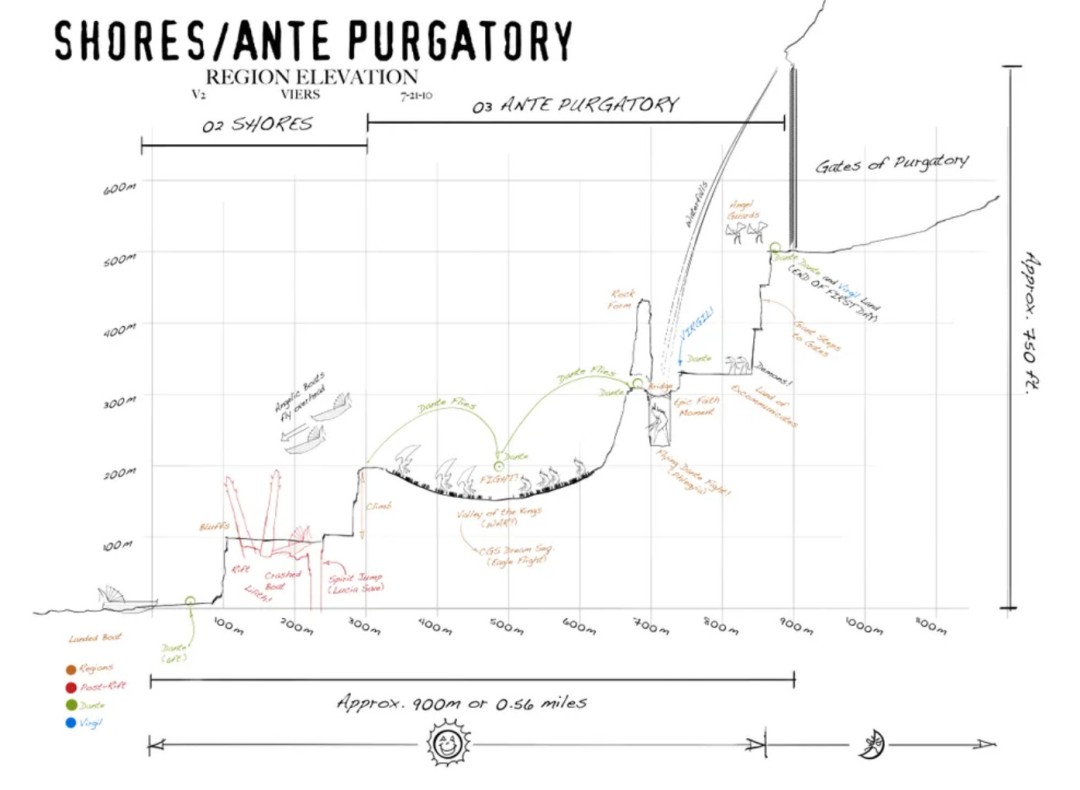 SHORES/ANTE PURGATORY
REGION ELEVATION
V2 VIERS 7-21-10
02 SHORES
03 ANTE PURGATORY
Gates of Purgatory
600m
500m
400m
300m
200m
100m
Waterfalls
Angel
Guards
Dante Dante and Virgil Land
(END OF FIRST DAY)
Giant Steps
to Gates
Rock
Form
VIRGIL!
Dante
Demons!
Land of
Excommunicates
Bridge
Epic Faith
Moment
Flying Dante Fight!
Dante Flies
Dante
Dante Flies
Angelic Boats
fly overhead
Dante
FIGHT!
Valley of the Kings
CGS Dream Seq.
(Eagle Flight)
Climb
Bluffs
Rift
Crashed
Boat
Lilith!
Spirit Jump
(Lucia Save)
100m
200m
300m
400m
500m
600m
700m
800m
900m
1000m
Approx. 750 ft.
Landed Boat
Dante
(6ft)
Regions
Post-Rift
Dante
Virgil
Approx. 900m or 0.56 miles